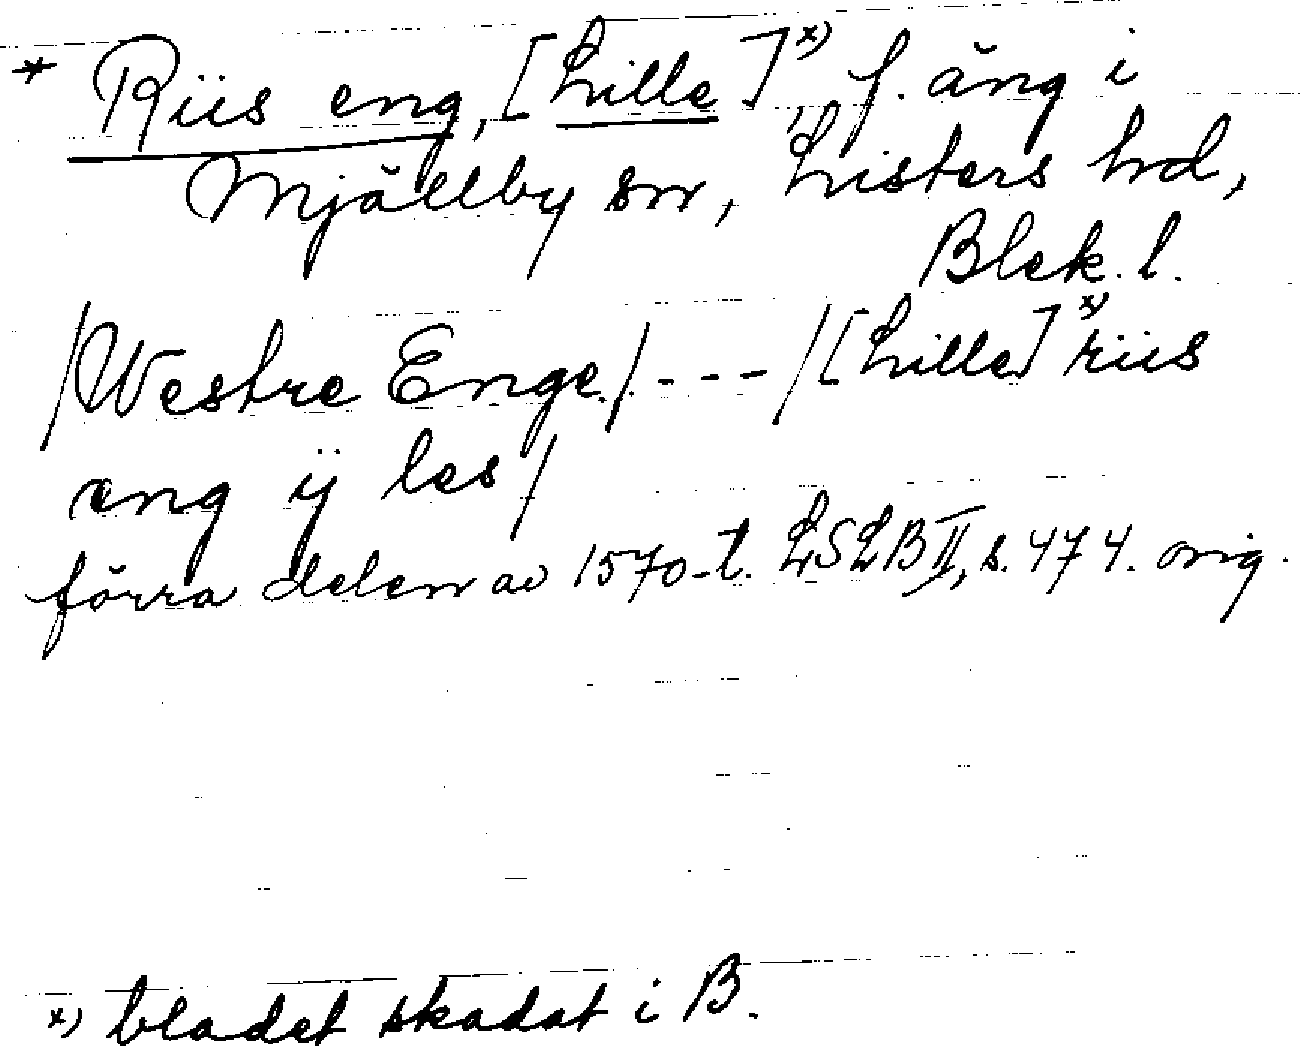 * Riis eng, [Lille]ˣ⁾, f. äng i
Mjällby sn, Listers hd,
Blek. l.
/Westre Enge/ - - - /[Lille]ˣ⁾ riis
eng ÿ les/
förra delen av 1570-t. LSLB II, s. 474. orig.
x) bladet skadat i B.